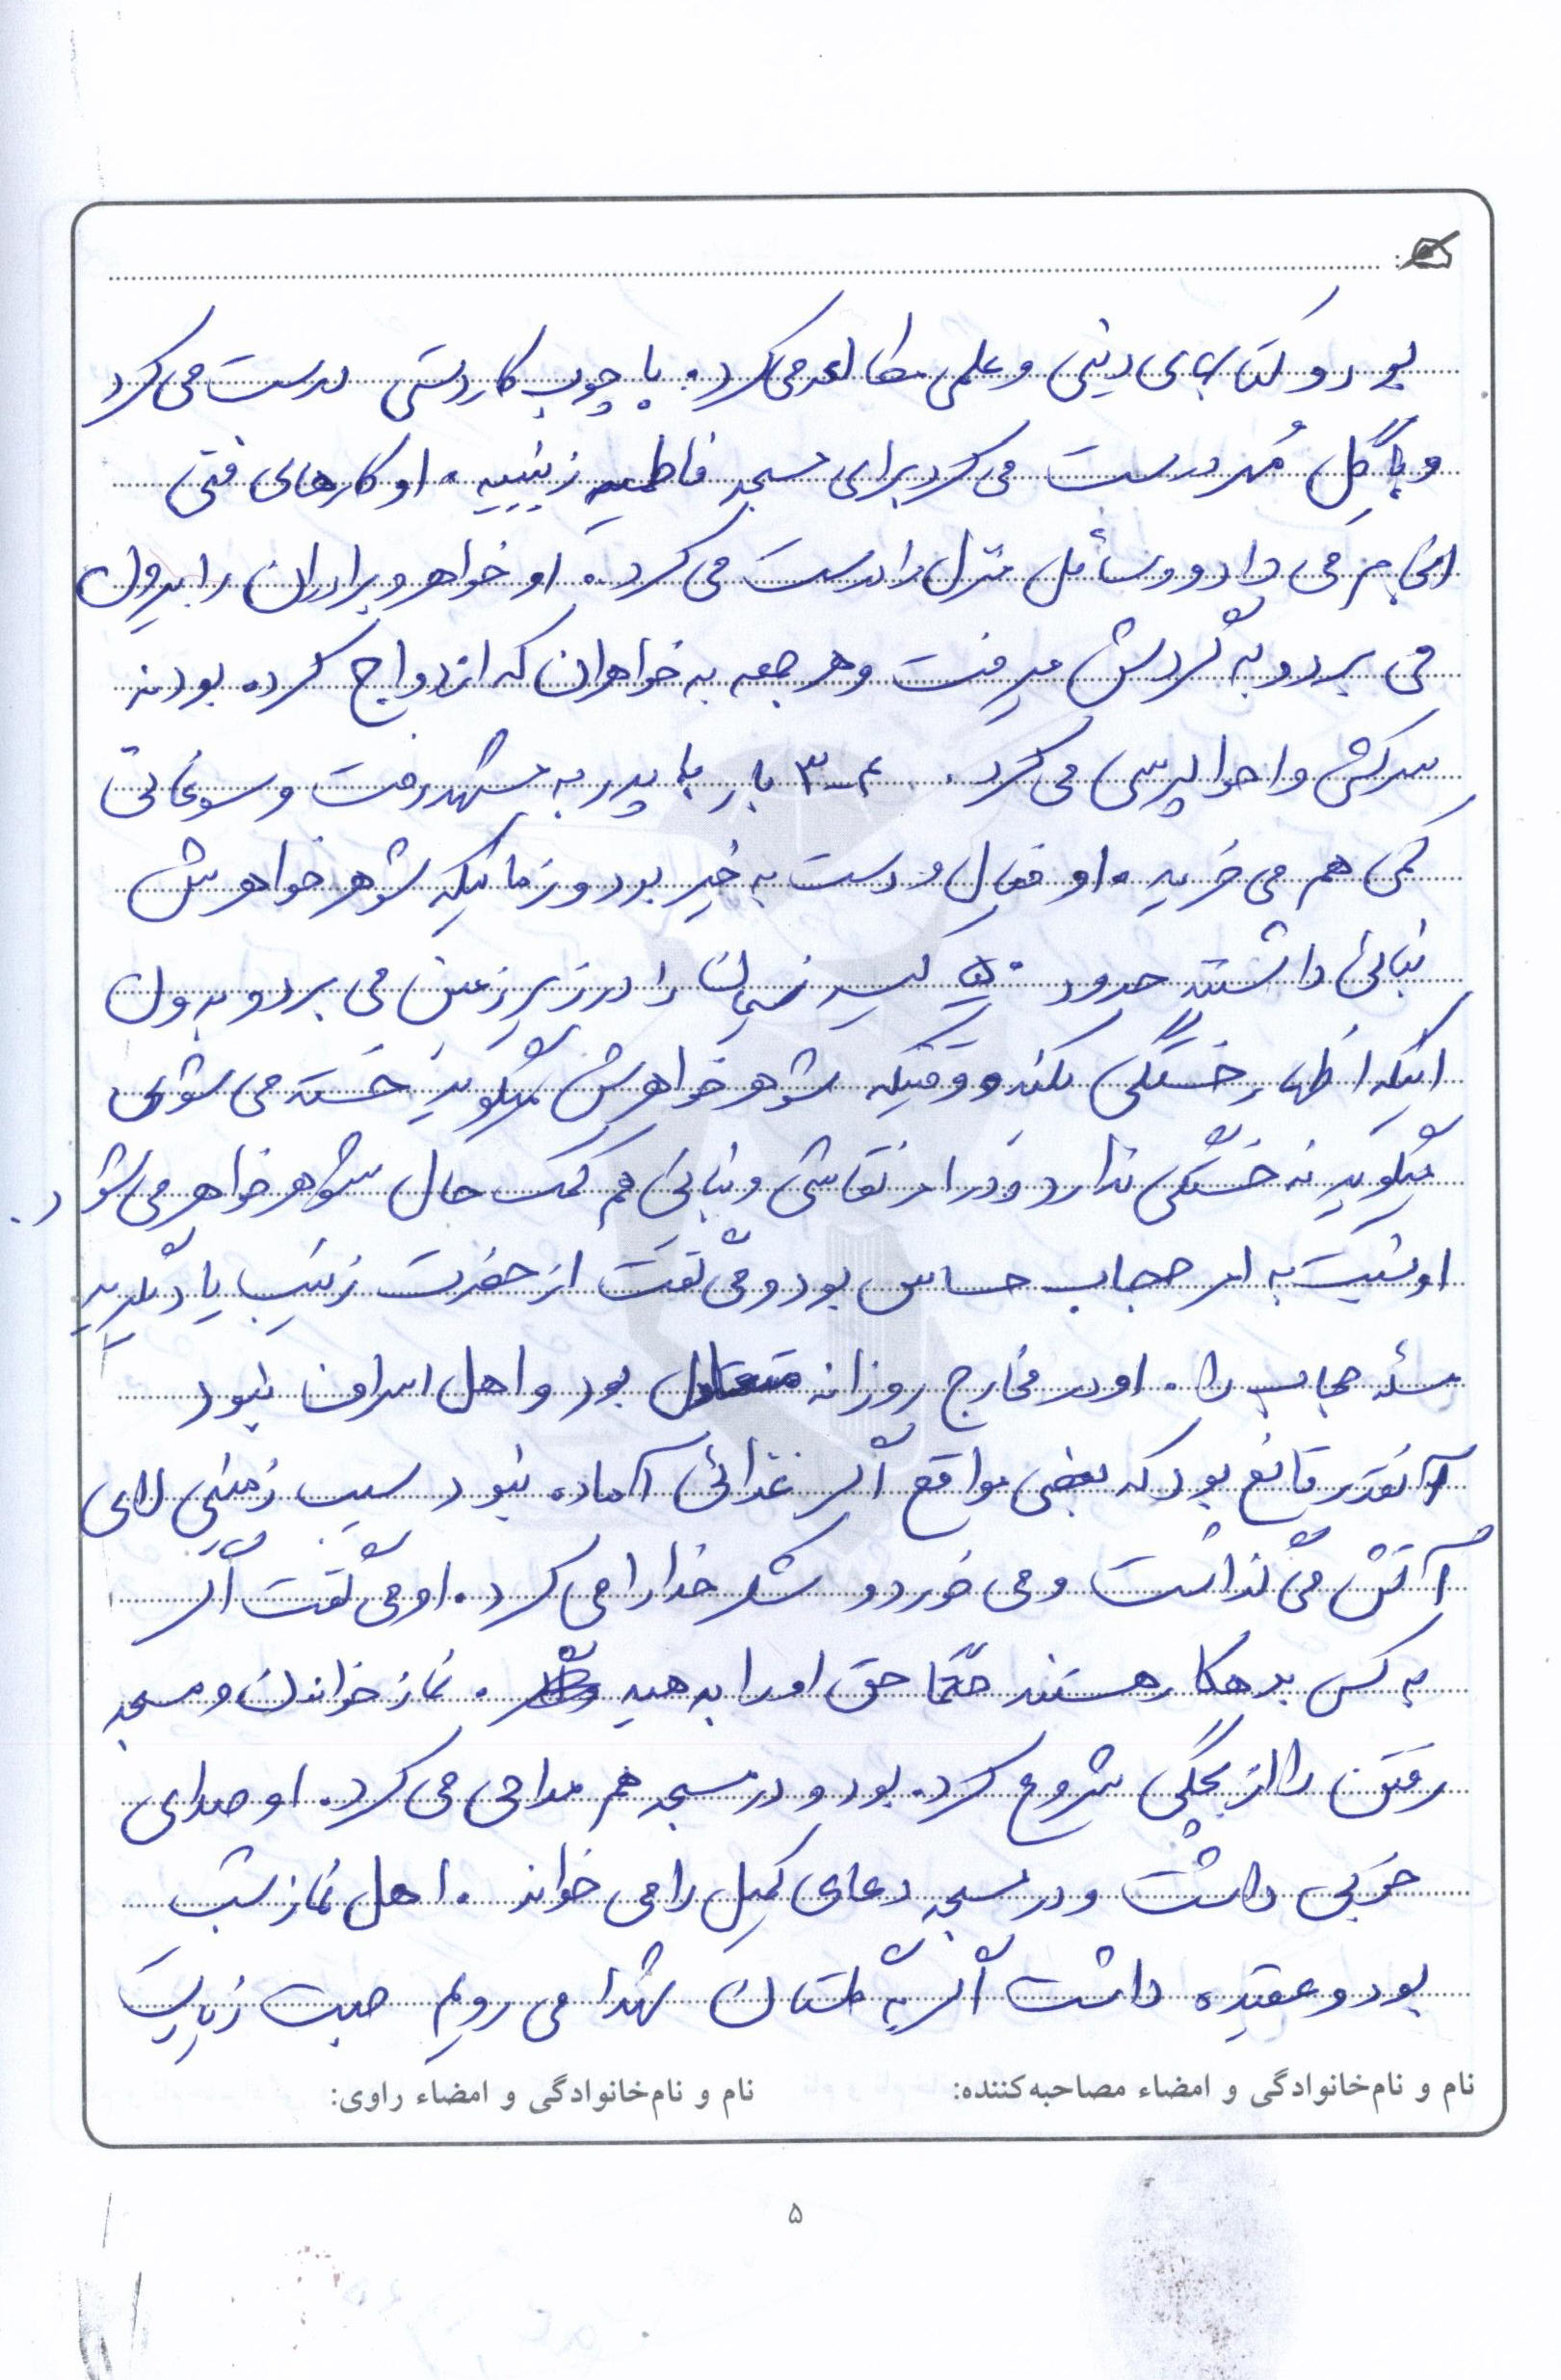 بود و کتابهای دینی و علمی مطالعه می کرد. با چوب کاردستی درست می کرد
و با گِل مُهر درست می کرد برای مسجد فاطمیه زینبیه. او کارهای فنی
انجام می داد و وسائل منزل را درست می کرد. او خواهر و برادران را بیرون
می برد و به گردش میرفت و هر جمعه به خواهران که ازدواج کرده بودند
سرکشی و احوالپرسی می کرد. ۳-۴ بار با پدر به مشهد رفت و سوغاتی
کمی هم می خرید. او فعال و دست به خیر بود و زمانیکه شوهر خواهرش
بنائی داشتند حدود ۵۰ کیسه سیمان را در زیرزمین می برد و بدون
اینکه اظهار خستگی بکند و وقتیکه شوهر خواهرش میگوید خسته می شوی
میگوید نه خستگی ندارد و در امر نقاشی و بنایی هم کمک حال شوهر خواهر می شود.
او نسبت به امر حجاب حساس بود و می گفت از حضرت زینب یاد بگیرید
مسئله حجاب را. او در مخارج روزانه متعادل بود و اهل اسراف نبود
آنقدر قانع بود که بعضی مواقع اگر غذائی آماده نبود سیب زمینی لای
آتش می گذاشت و می خورد و شکر خدا را می کرد. او می گفت اگر
به کس بدهکار هستند حتماً حق او را بدهید. نماز خواندن و مسجد
رفتن را از بچگی شروع کرده بود و در مسجد هم مداحی می کرد. او صدای
خوبی داشت و در مسجد دعای کمیل را می خواند. اهل نماز شب
بود و عقیده داشت اگر به گلستان شهدا می رویم جهت زیارت
نام و نام‌خانوادگی و امضاء مصاحبه‌کننده: نام و نام‌خانوادگی و امضاء راوی:
۵